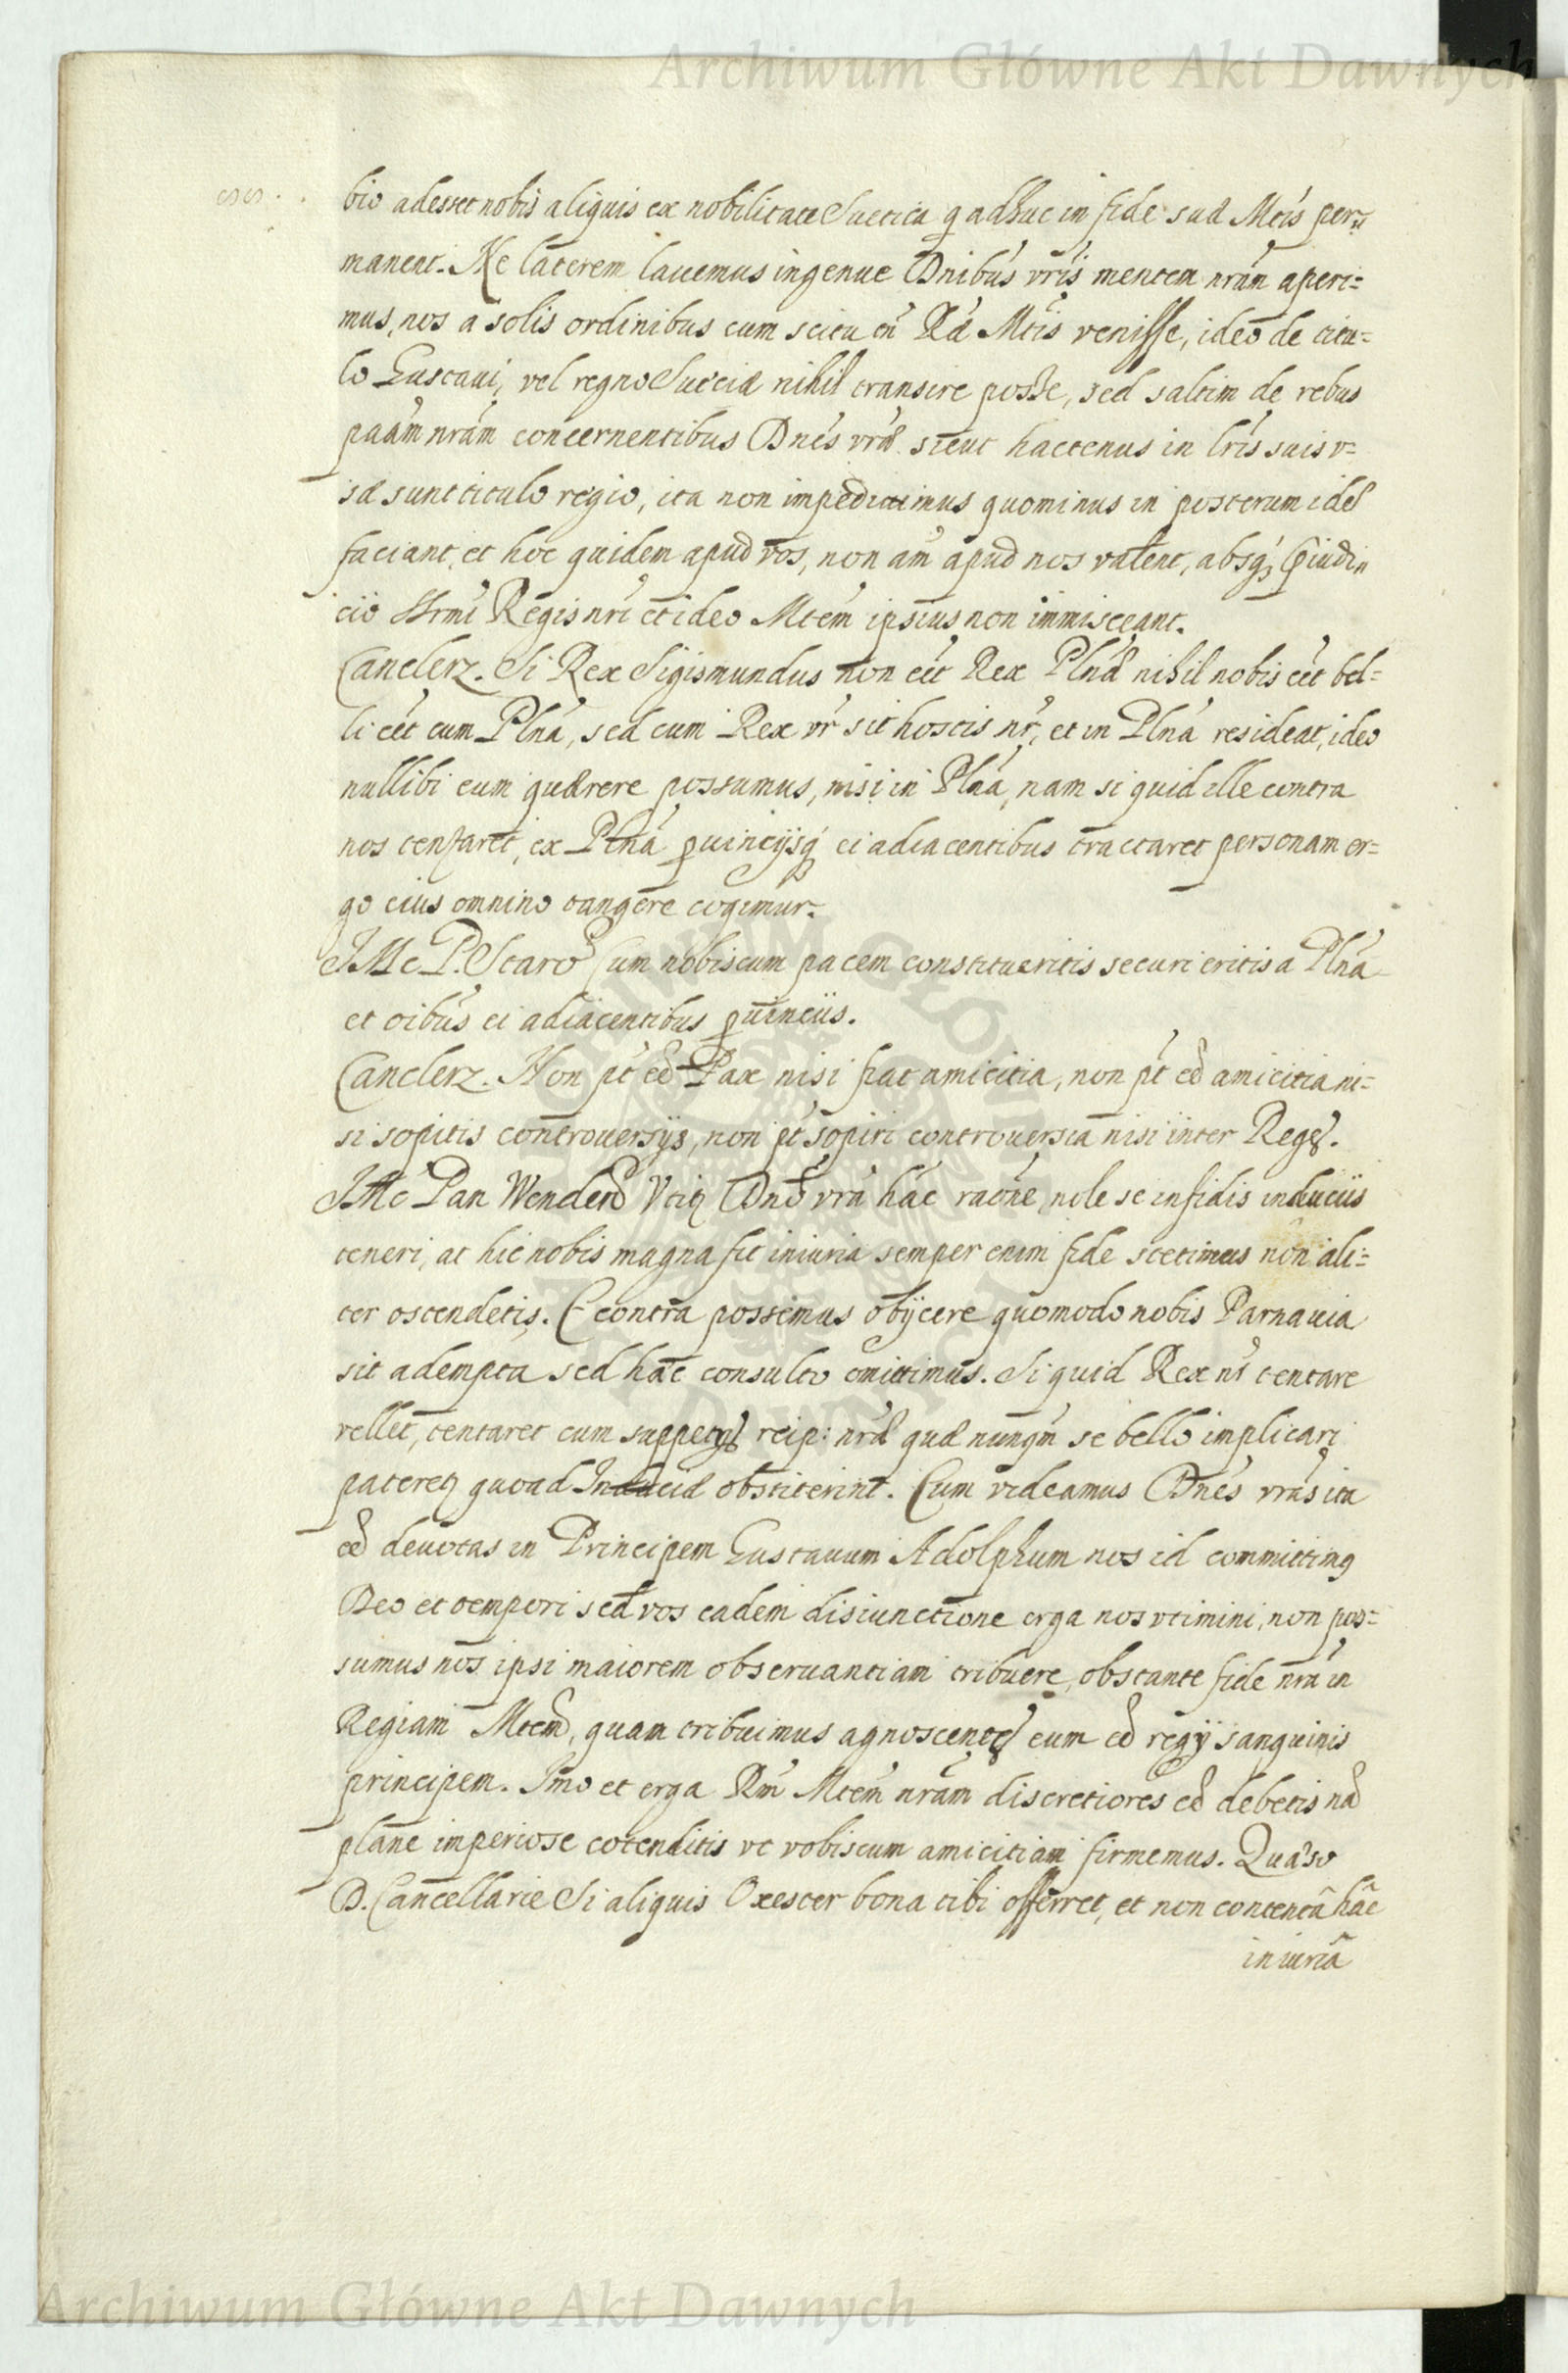 Archiwum Główne Akt Dawnych
bio adesset nobis aliquis ex nobilitate Suetica q adhuc in fide suæ Mtis per=
manent. Ne laterem lauemus ingenue Dnibus vris mentem nram aperi=
mus, nos a solis ordinibus cum scitu tn Ræ Mtis venisse, ideo de titu=
lo Gustaui, vel regno Sueciæ nihil transire posse, sed saltim de rebus
paam nram concernentibus Dnes vræ sicut hactenus in lris suis v=
sæ sunt titulo regio, ita non impedimus quominus in posterum idem
faciant, et hoc quidem apud vos, non am apud nos valent, absq piudi=
cio Srmi Regis nri et ideo Mtem ipsius non immisceant.
Canclerz. Si Rex Sigismundus non eet Rex Plnæ nihil nobis eet bel=
li eet cum Plna, sed cum Rex vr sit hostis nr, et in Plna resideat, ideo
nullibi eum quærere possumus, nisi in Plna, nam si quid ille contra
nos tentaret, ex Plna puincijsq ei adiacentibus tractaret personam er=
go eius omnino tangere cogimur.
JMc P. Staro Cum nobiscum pacem constitueritis securi eritis a Plna
et oibus ei adiacentibus puincijs.
Canclerz. Non pt ee Pax nisi fiat amicitia, non pt ee amicitia ni=
si sopitis controuersijs, non pt sopiri controuersia nisi inter Reges.
JMc Pan Wenden Vtiq Dno vra hac raone nole se infidis induciis
teneri, at hic nobis magna fit iniuria semper enim fide stetimus non ali=
ter ostendetis. E contra possemus obijcere quomodo nobis Parnauia
sit adempta sed hæc consulto omittimus. Si quid Rex nr tentare
vellet, tentaret cum suppetijs reip: nræ quæ nunqm se bello implicari
pateretq quoad Induciæ obstiterint. Cum videamus Dnes vras ita
ee deuotas in Principem Gustauum Adolphum nos id committimq
Deo et tempori sed vos eadem disiunctione erga nos vtimini, non pos=
sumus nos ipsi maiorem obseruantiam tribuere, obstante fide nra in
Regiam Mtem, quam tribuimus agnoscentes eum ee regij sanguinis
principem. Imo et erga Rm Mtem nram discretiores ee debetis na
plane imperiose cotenditis vt vobiscum amicitiam firmemus. Quæso
D. Cancellarie Si aliquis Oxester bona tibi offerret, et non contentâ hâc
iniuriâ
Archiwum Główne Akt Dawnych